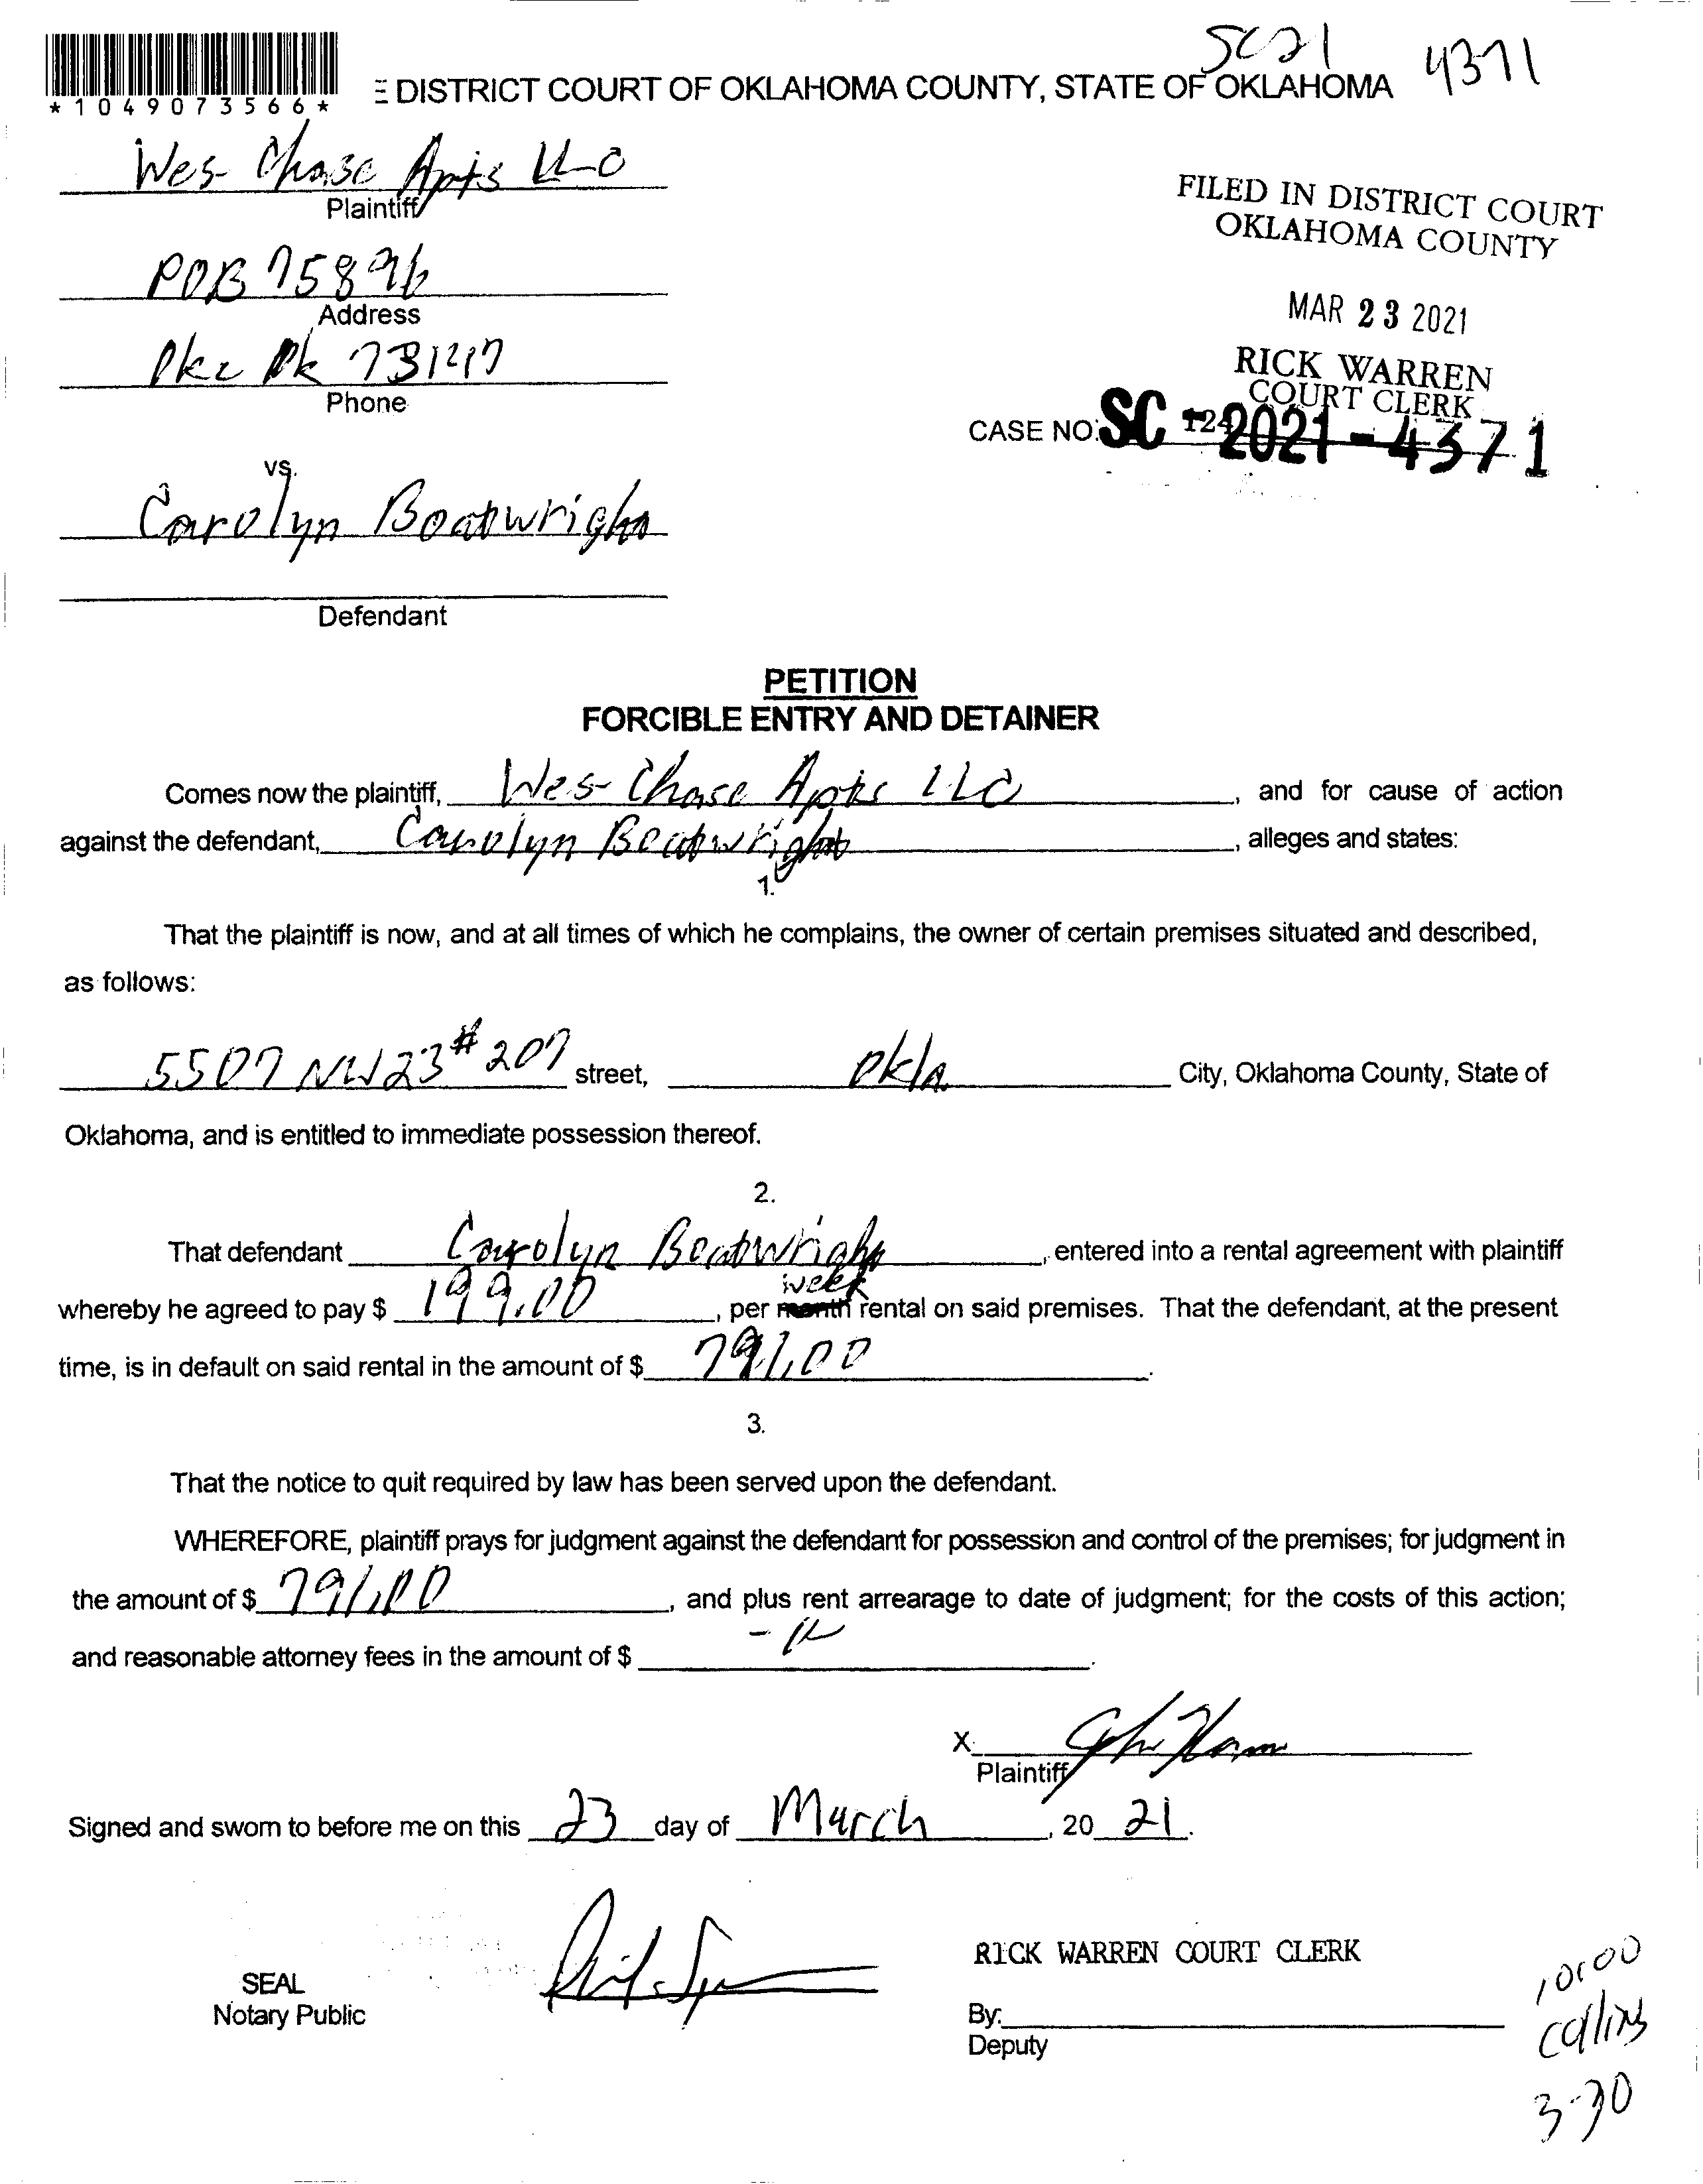 SC21 4371
*1049073566*
E DISTRICT COURT OF OKLAHOMA COUNTY, STATE OF OKLAHOMA
Wes Chase Apts LLC
Plaintiff
POB 75896
Address
Okc Ok 73147
Phone
FILED IN DISTRICT COURT
OKLAHOMA COUNTY
MAR 23 2021
RICK WARREN
COURT CLERK
CASE NO. SC 2021-4371
vs.
Carolyn Boatwright
Defendant
PETITION
FORCIBLE ENTRY AND DETAINER
Comes now the plaintiff, Wes Chase Apts LLC, and for cause of action
against the defendant, Carolyn Boatwright, alleges and states:
1.
That the plaintiff is now, and at all times of which he complains, the owner of certain premises situated and described,
as follows:
5507 NW 23 # 207 street, Okla City, Oklahoma County, State of
Oklahoma, and is entitled to immediate possession thereof.
2.
That defendant Carolyn Boatwright, entered into a rental agreement with plaintiff
week
whereby he agreed to pay $ 199.00, per month rental on said premises. That the defendant, at the present
time, is in default on said rental in the amount of $ 791.00.
3.
That the notice to quit required by law has been served upon the defendant.
WHEREFORE, plaintiff prays for judgment against the defendant for possession and control of the premises; for judgment in
the amount of $ 791.00, and plus rent arrearage to date of judgment; for the costs of this action;
and reasonable attorney fees in the amount of $
X
Plaintiff
Signed and sworn to before me on this 23 day of March, 20 21.
SEAL
Notary Public
RICK WARREN COURT CLERK
By:
Deputy
Collins
3-30